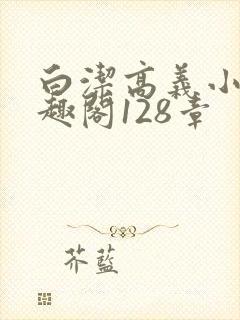 白潔高義小
趣閣128章
芥藍